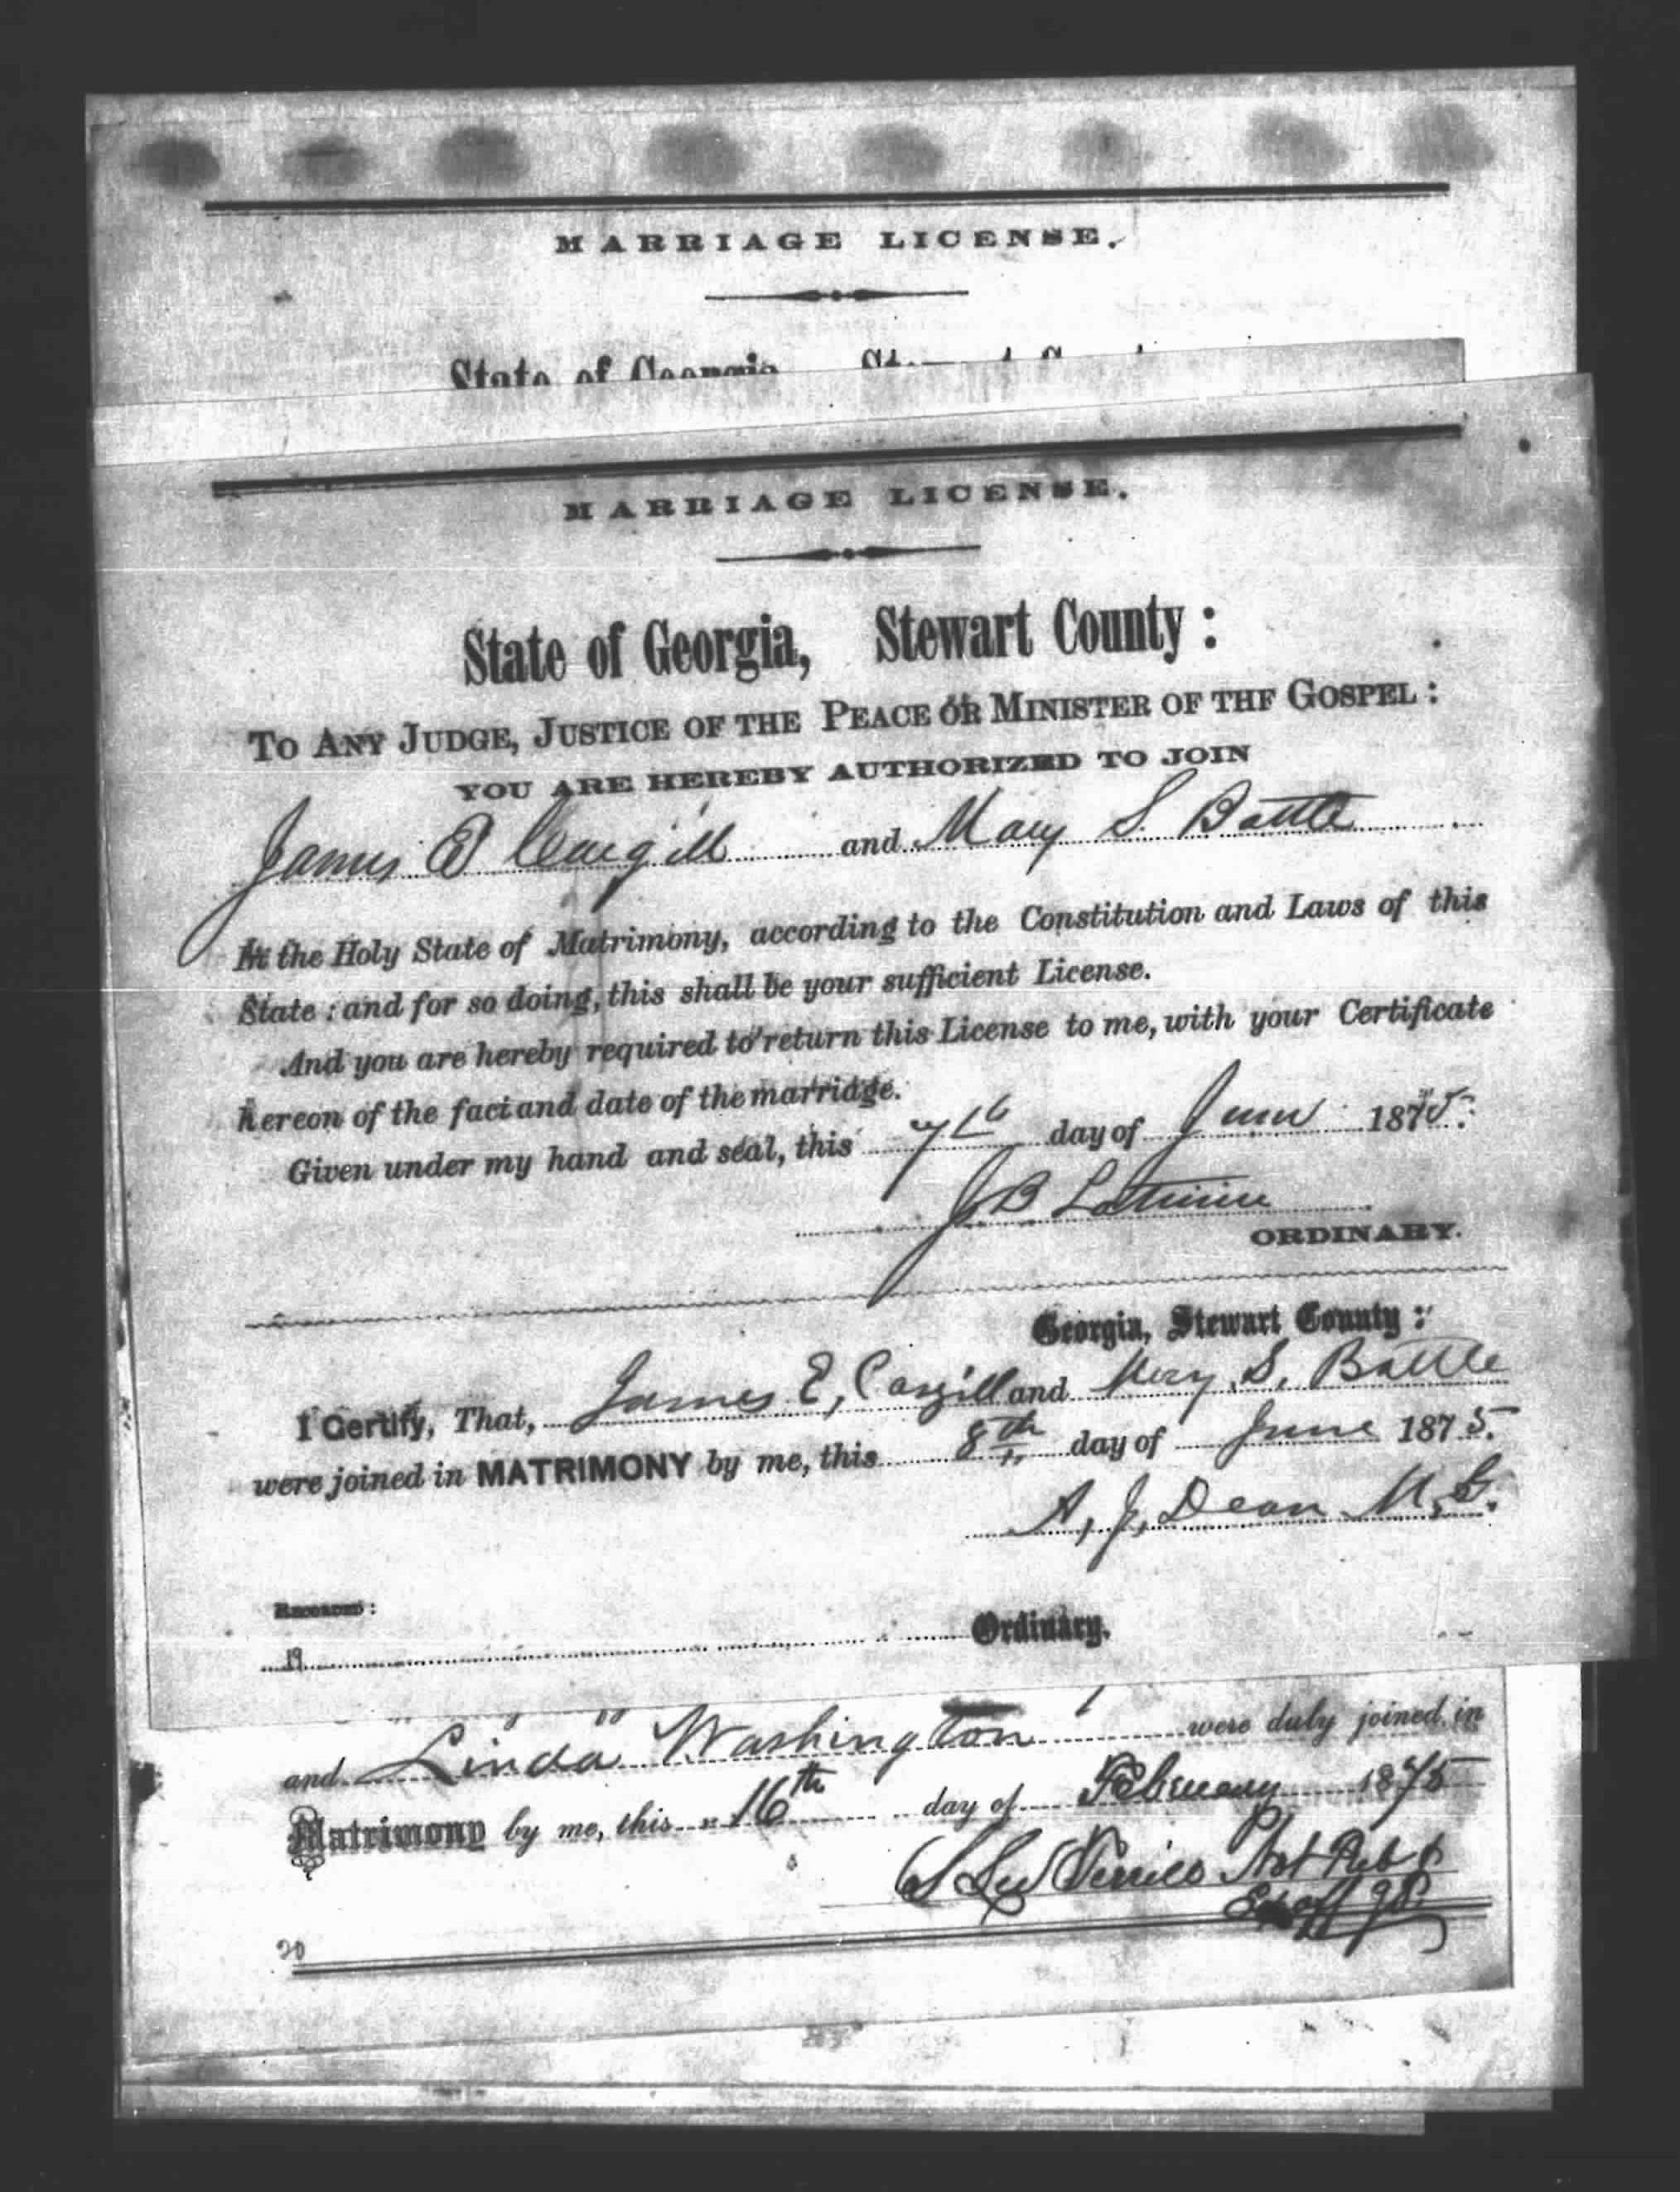 MARRIAGE LICENSE.
State of Georgia,
MARRIAGE LICENSE.
State of Georgia, Stewart County :
TO ANY JUDGE, JUSTICE OF THE PEACE OR MINISTER OF THF GOSPEL :
YOU ARE HEREBY AUTHORIZED TO JOIN
James E Cargill and Mary S. Battle
In the Holy State of Matrimony, according to the Constitution and Laws of this
State : and for so doing, this shall be your sufficient License.
And you are hereby required to return this License to me, with your Certificate
hereon of the fact and date of the marriage.
Given under my hand and seal, this 7th day of June 1875.
J B Latimer
ORDINARY.
Georgia, Stewart County :
I Certify, That, James E, Cargill and Mary S. Battle
were joined in MATRIMONY by me, this 8th day of June 1875.
A, J, Dean M, G.
19
Ordinary.
and Linda Washington were duly joined in
Matrimony by me, this 16th day of February 1875
Not Pub &
Ex off JP
20